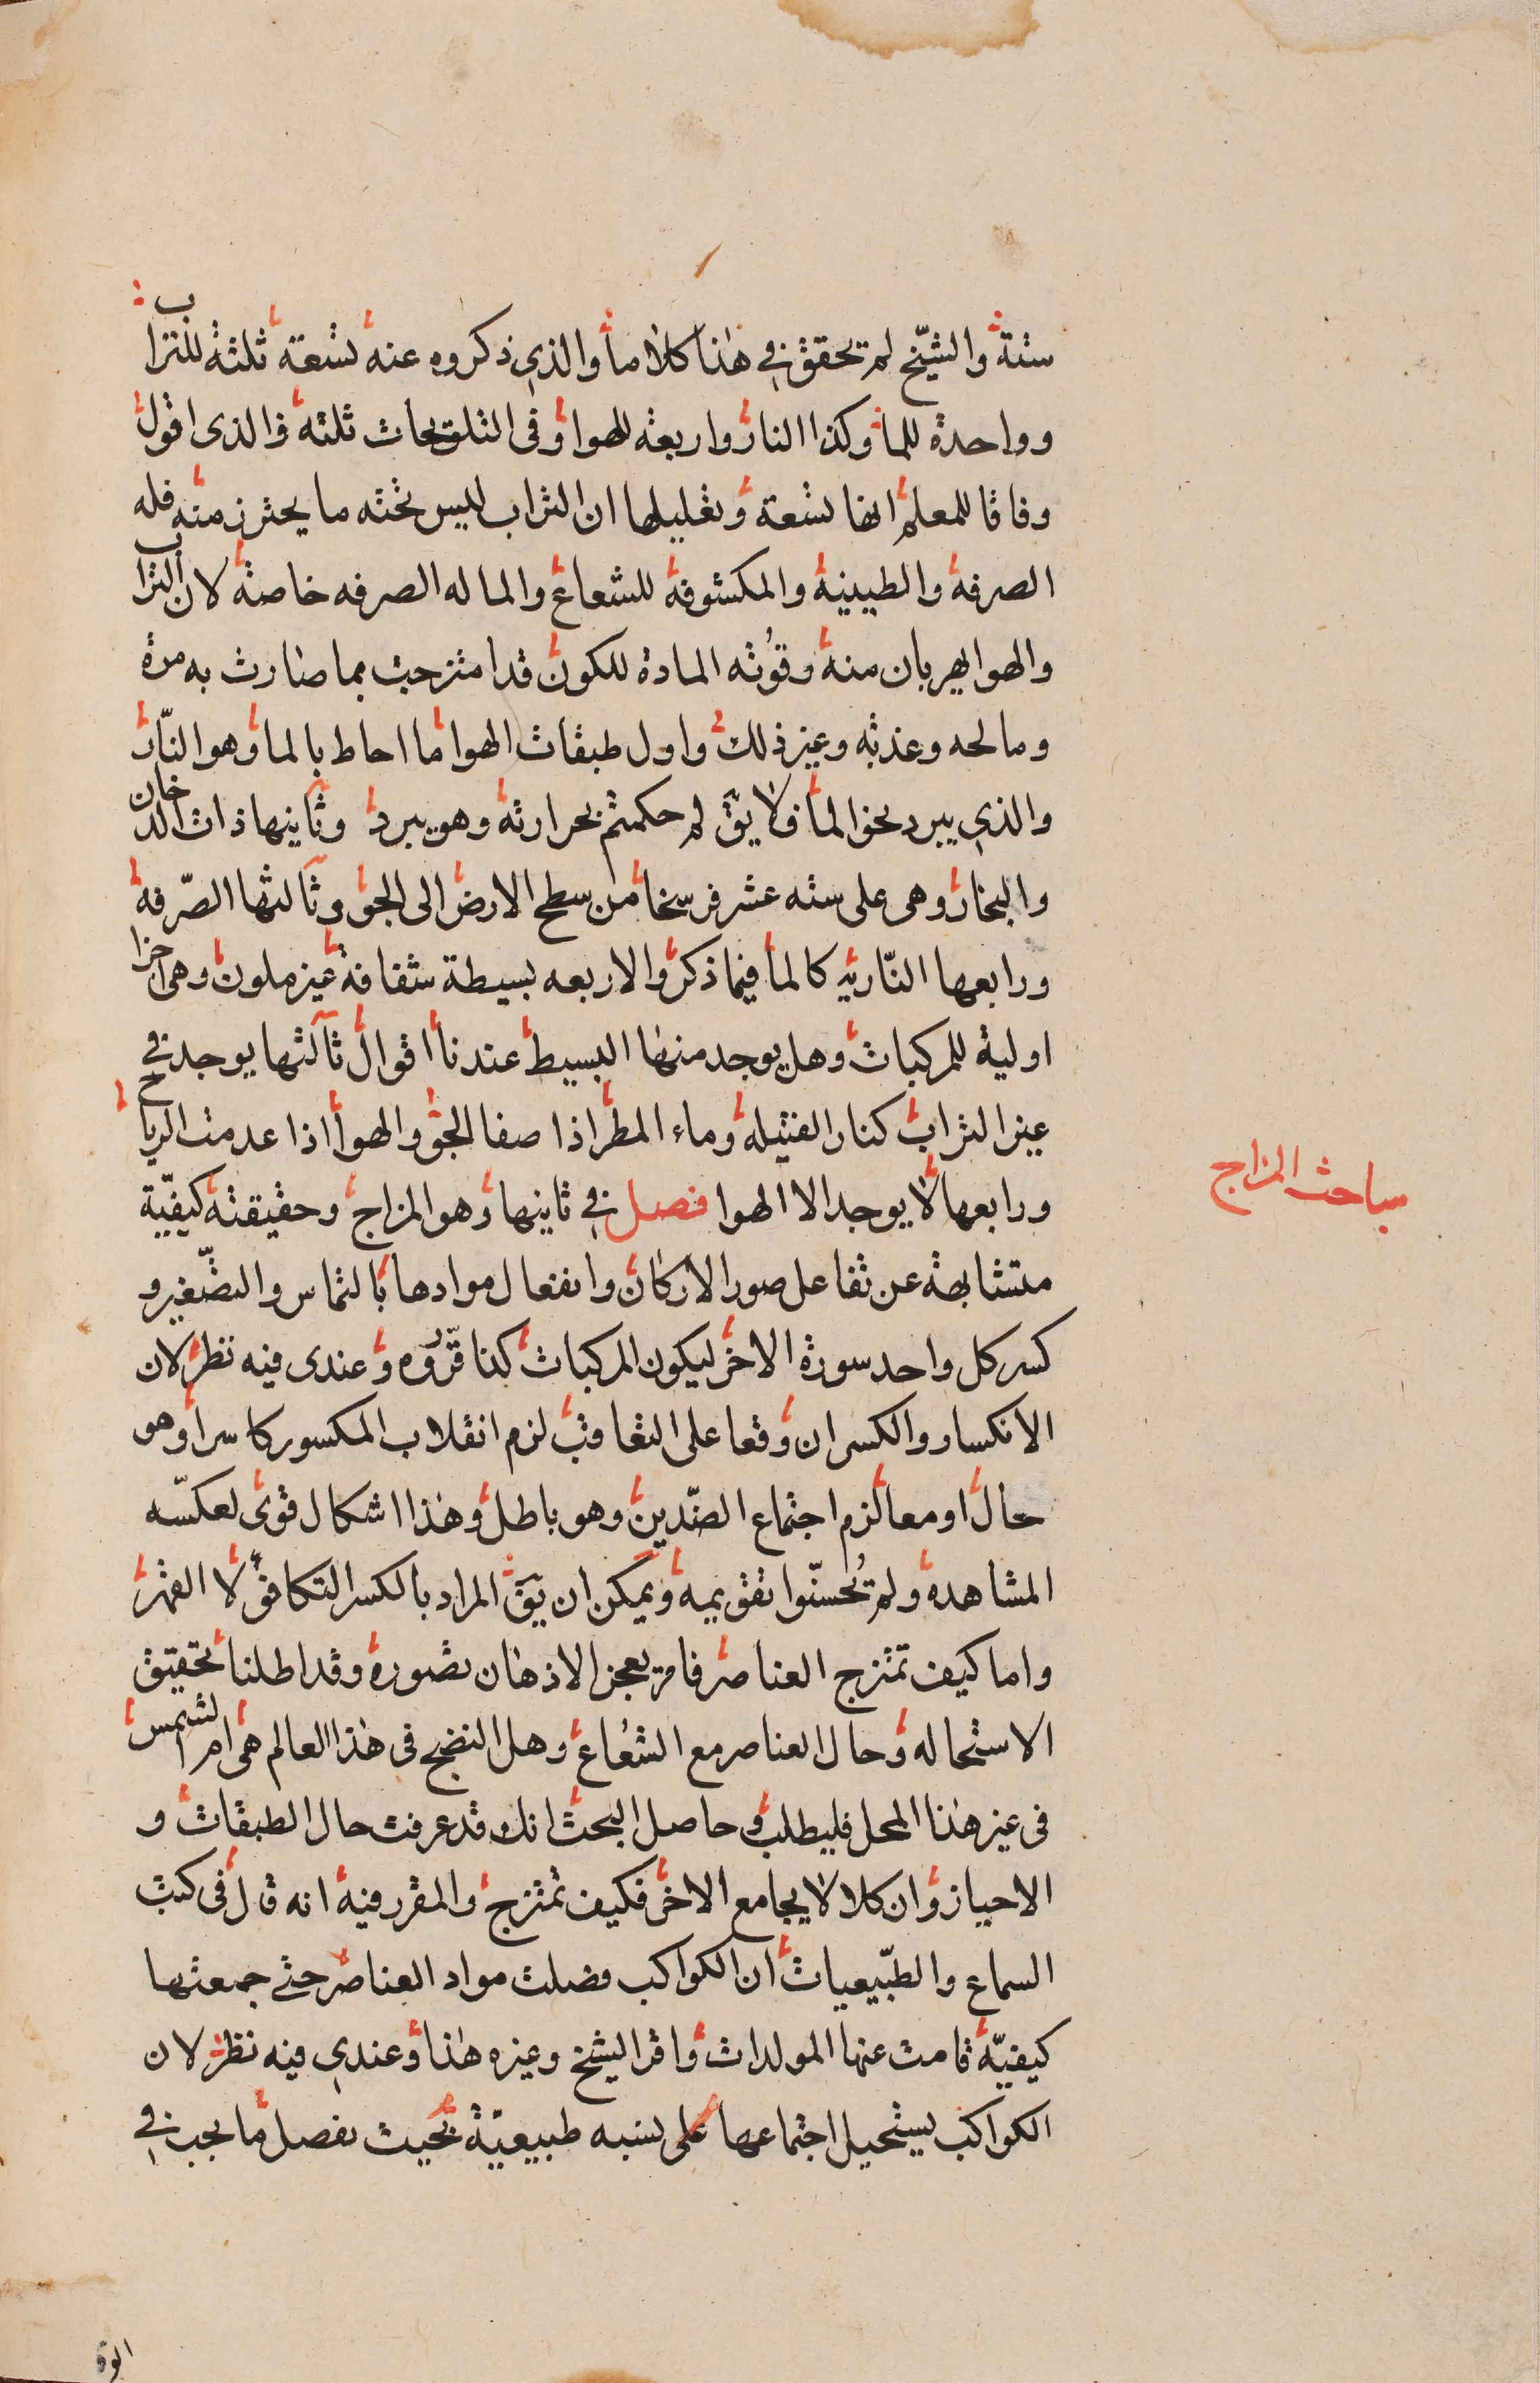 ستة والشيخ لم تحقق في هذا كلاما والذي ذكروه عنه تسعة ثلثة للتراب
وواحدة للما وكذا النار واربعه للهوا وفى التلويحات ثلثه والذى اقول
وفاقا للمعلم انها تسعة وتعليلها ان التراب ليس تحته ما يحترز منه فله
الصرفة والطينية والمكشوفة للشعاع والما له الصرفه خاصة لان التراب
والهوا يهربان منه وقوته المادة للكون قد امتزجت بما صارت به مرة
ومالحه وعذبه وغير ذلك واول طبقات الهوا ما احاط بالما وهو النار
والذي يبرد نحو الما فلا يق لم حكمتم بحرارته وهو يبرد وثانيها ذات الدخان
والبخار وهى على سته عشر فرسخا من سطح الارض الى الجو وثالثها الصرفة
ورابعها الناريه كالما فيما ذكر والاربعه بسيطة شفافة غير ملون وهى اجزا
اولية للمركبات وهل يوجد منها البسيط عندنا اقوال ثالثها يوجد في
غير التراب كنار الفتيله وماء المطر اذا صفا الجو والهوا اذا عدمت الرياح
ورابعها لا يوجد الا الهوا فصل في ثانيها وهو المزاج وحقيقته كيفية
متشابهة عن تفاعل صور الاركان وانفعال موادها بالتماس والتصغير و
كسر كل واحد سورة الاخر ليكون المركبات كذا قرروه وعندى فيه نظر لان
الانكسار والكسر ان وقعا على التعاقب لزم انقلاب المكسور كاسرا وهو
حال او معا لزم اجتماع الضدين وهو باطل وهذا اشكال قوى لعكسه
المشاهدة ولم تحسنوا تقويمه ويمكن ان يق المراد بالكسر التكافؤ لا القهر
واما كيف تمتزج العناصر فامر يعجز الاذهان تصوره وقد اطلنا تحقيق
الاستحاله وحال العناصر مع الشعاع وهل النضج فى هذا العالم هى ام الشمس
فى غير هذا المحل فليطلب وحاصل البحث انك قد عرفت حال الطبقات و
الاحياز وان كلا لا يجامع الاخر فكيف تمتزج والمقرر فيه انه قال فى كتب
السماع والطبيعيات ان الكواكب فصلت مواد العناصر حتى جمعتها
كيفية قامت عنها المولدات واقر الشيخ وغيره هذا وعندي فيه نظر لان
الكواكب يستحيل اجتماعها على نسبه طبيعية بحيث تفصل ما يجب في
مباحث المزاج